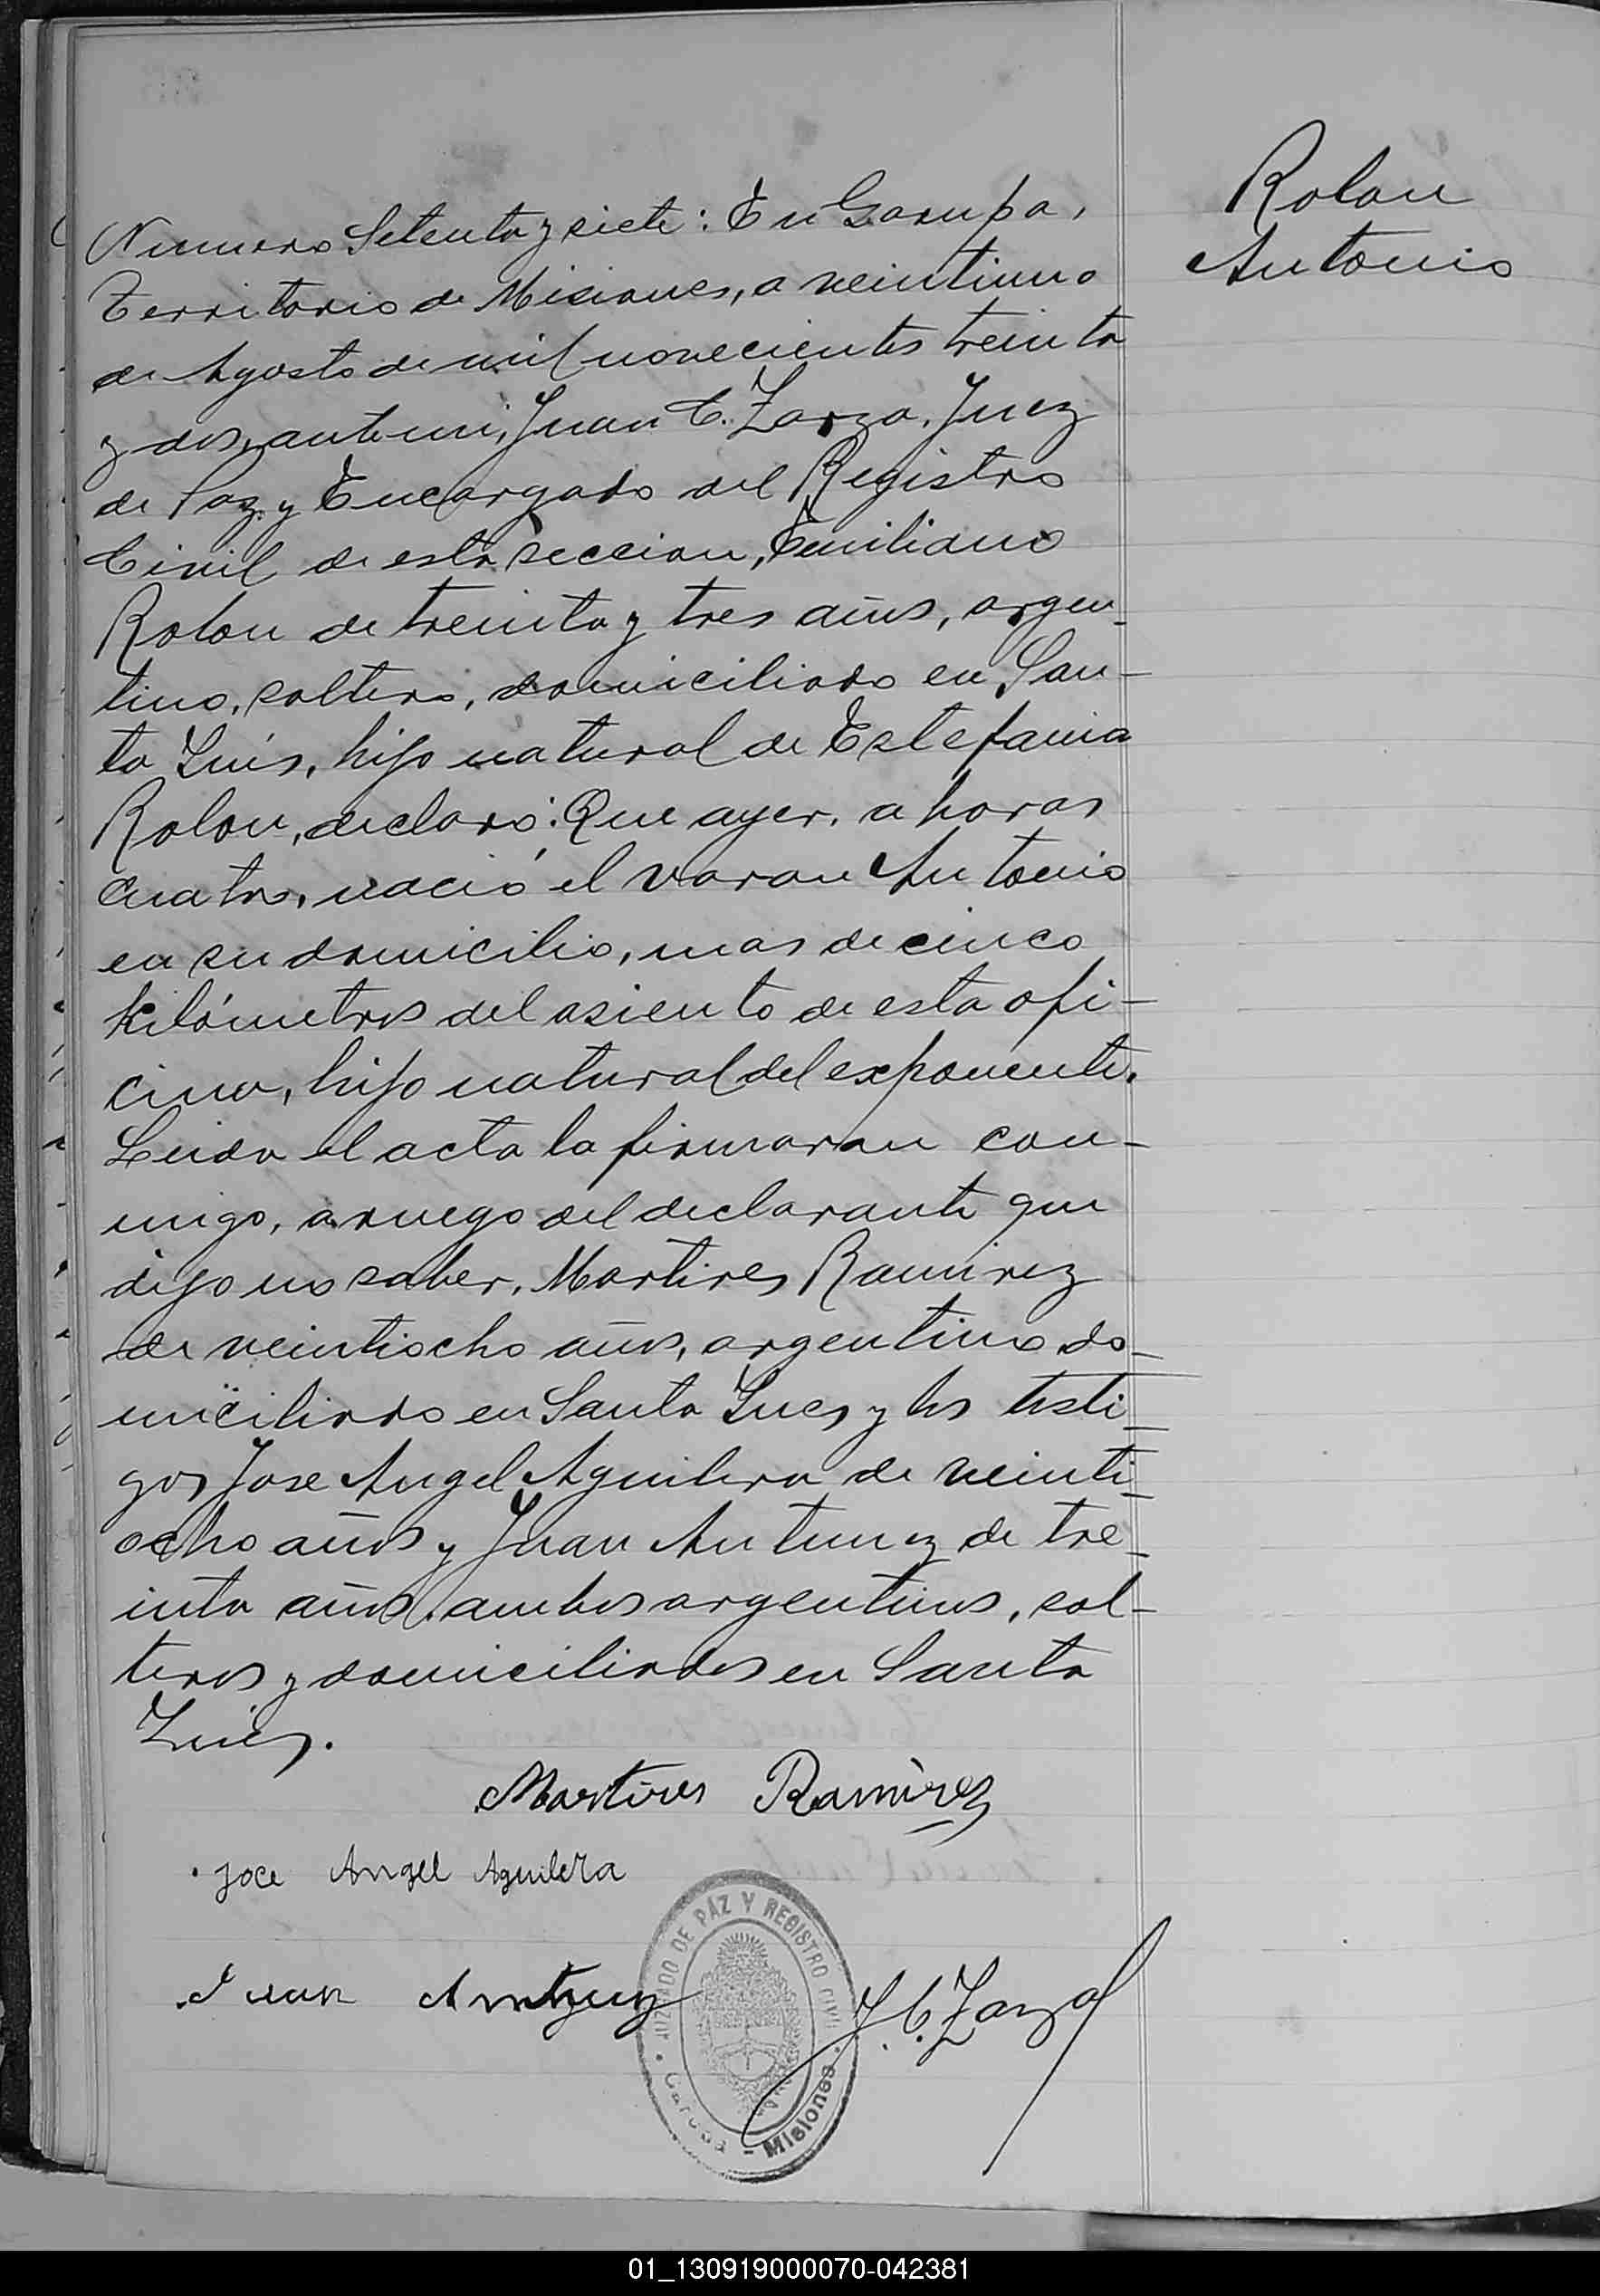 Rolon
Antonio
Numero Setenta y siete: En Garupa,
Territorio de Misiones, a veintiuno
de Agosto de mil novecientos treinta
y dos, ante mi, Juan C. Zarza, Juez
de Paz y Encargado del Registro
Civil de esta seccion, Emiliano
Rolon de treinta y tres años, argen-
tino, soltero, domiciliado en San-
ta Inés, hijo natural de Estefania
Rolon, declaró: Que ayer, a horas
cuatro, nació el varon Antonio
en su domicilio, mas de cinco
kilómetros del asiento de esta ofi-
cina, hijo natural del exponente.
Leida el acta la firmaron con-
migo, a ruego del declarante que
dijo no saber, Martires Ramirez
de veintiocho años, argentino do-
miciliado en Santa Ines y los testi-
gos Jose Angel Aguilera de veinti-
ocho años y Juan Antunez de tre-
inta años, ambos argentinos, sol-
teros y domiciliados en Santa
Ines.
Martires Ramirez
Joce Angel Aguilera
Juan
J. C. Zarza
JUZGADO DE PAZ Y REGISTRO CIVIL
Garupá - Misiones
01_130919000070-042381